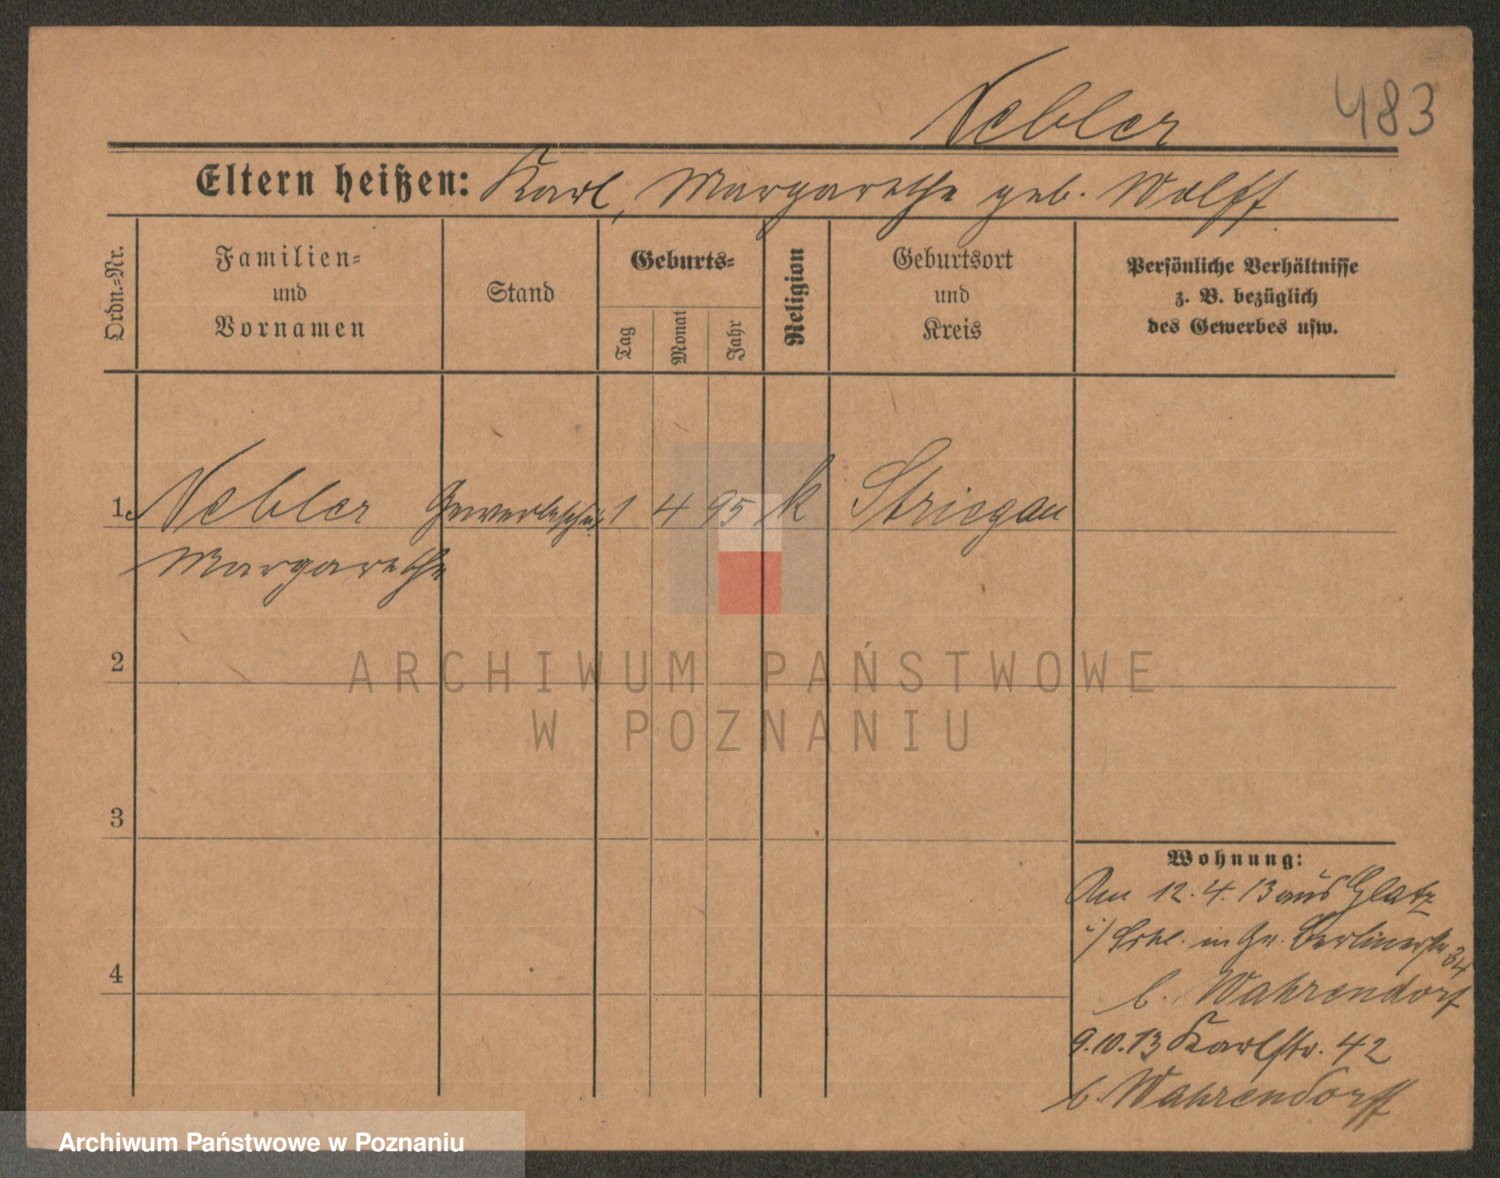 Nebler 483
Eltern heißen: Karl, Margarethe geb. Wolff
Ordn.-Nr.
Familien-
und
Vornamen
Stand
Geburts-
Tag
Monat
Jahr
Religion
Geburtsort
und
Kreis
Persönliche Verhältnisse
z. B. bezüglich
des Gewerbes usw.
1. Nebler Gewerbesch. 1 4 95 k Striegau
Margarethe
2
3
4
Wohnung:
Am 12.4.13 aus Glatz
in Berlinerstr 34
b. Wahrendorf
9.10.13 Karlstr. 42
b. Wahrendorff
ARCHIWUM PAŃSTWOWE
W POZNANIU
Archiwum Państwowe w Poznaniu